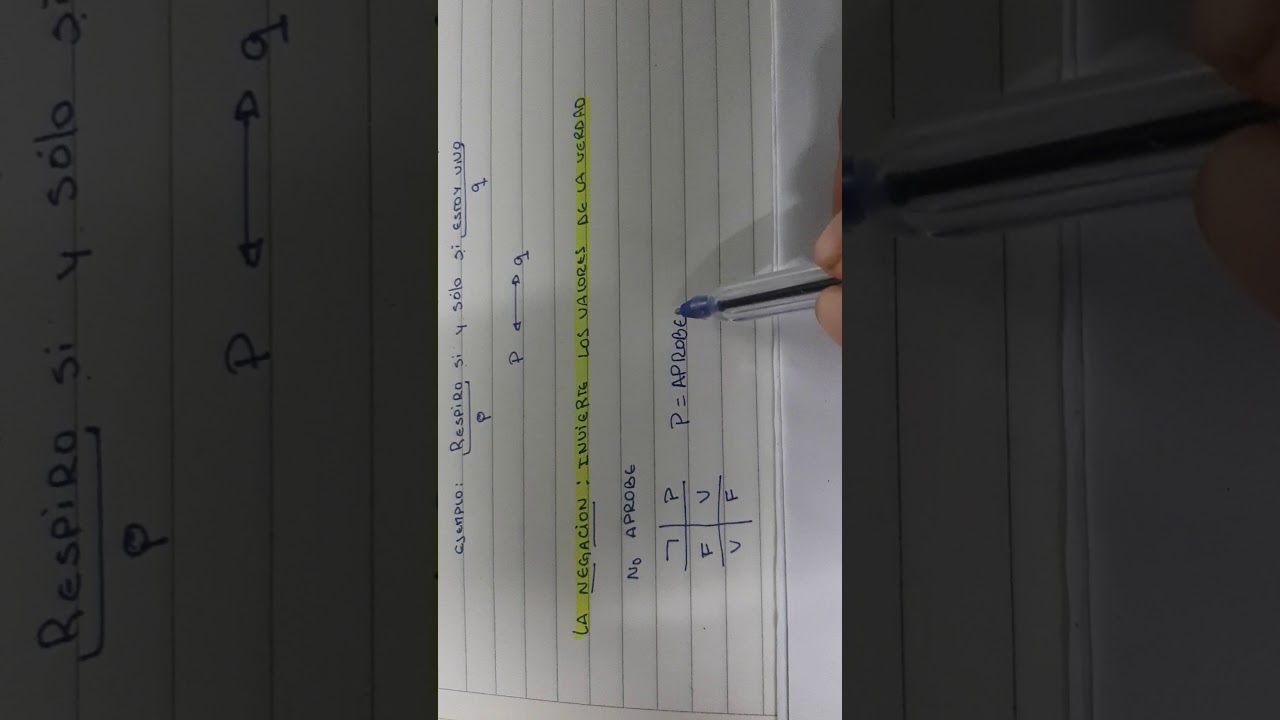 Respiro si y sólo si
P
P ↔ q
ejemplo: Respiro si y sólo si estoy vivo
P q
P ↔ q
LA NEGACION: INVIERTE LOS VALORES DE LA VERDAD
NO APROBE
¬ | P P = APROBE
F | V
V | F